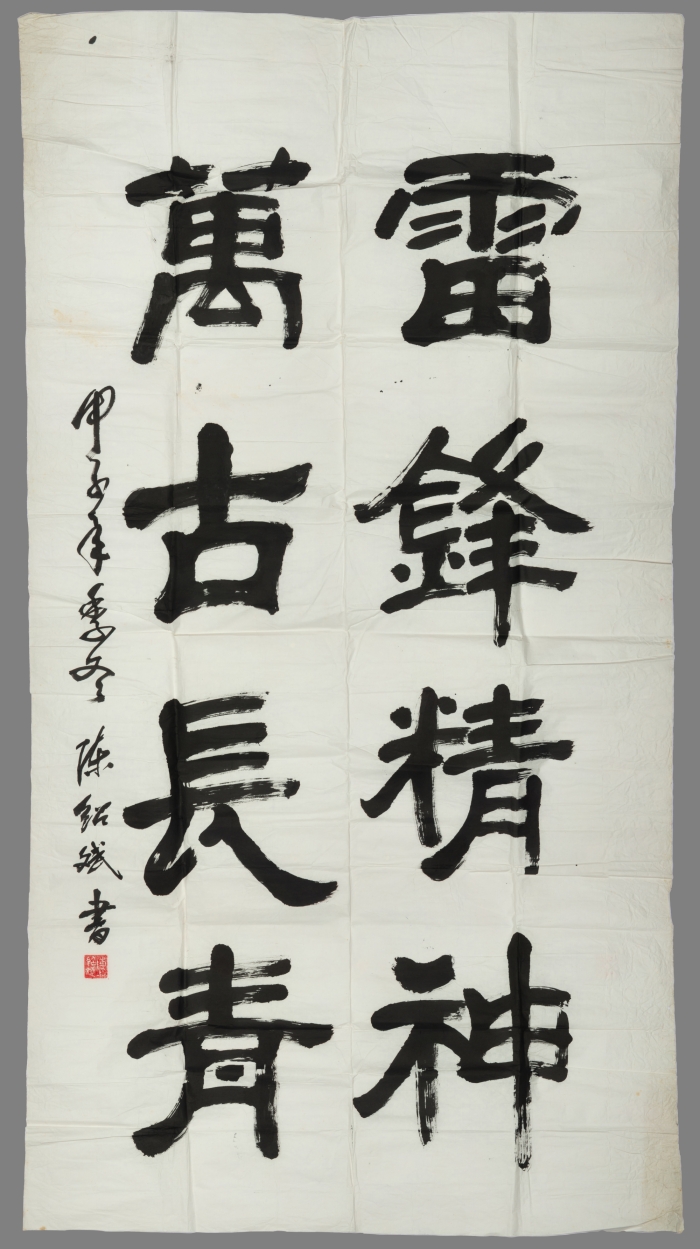 雷鋒精神
萬古長青
甲子年季冬 陳紹斌書